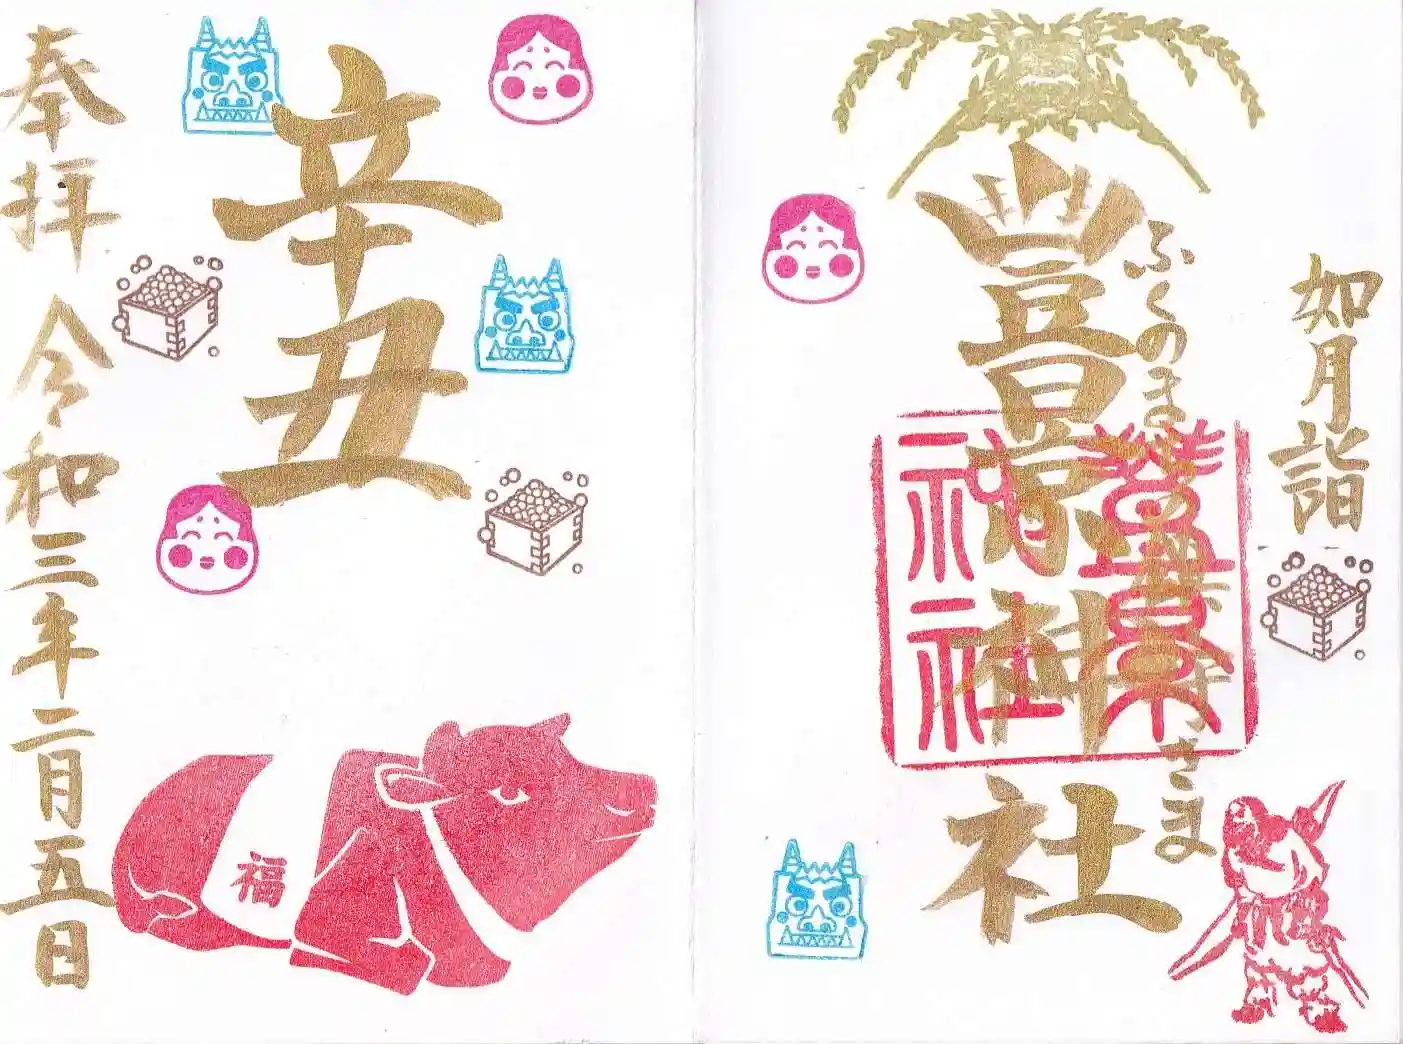 如月詣
ふくの
さま
豊景神社
豊景神社
辛丑
福
奉拝 令和三年二月五日